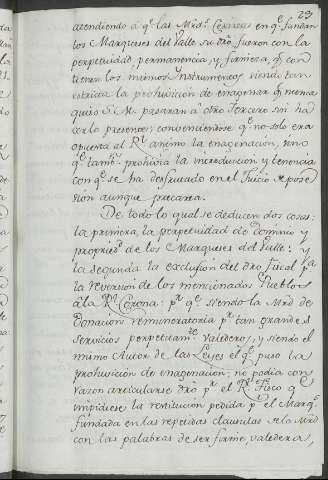 23
atendiendo à qe. las Mrds. Cesareas en qe. fundan
los Marqueses del Valle su dro. fueron con la
perpetuidad, permanencia, y firmeza qe. con
tienen los mismos Instrumentos, siendo tan
estricta la prohivicion de enagenar qe. ni en a
quio S. M. pasaran à otro tercero sin ha
cerlo presente; conveniendose qe. no solo era
opuesta al Rl. animo la enagenacion, sino
qe. tambn. prohivia la interdiccion y tenencia
con qe. se ha desfrutado en el Juicio de pose
sion aunque precaria.
De todo lo qual se deducen dos cosas:
la primera, la perpetuidad de Dominio y
propried. de los Marqueses del Valle: y
la segunda la exclusion del dro. fiscal pa.
la reversion de los mencionados Pueblos
â la Rl. Corona: pr. qe. siendo la Mrd. de
Donacion remuneratoria pr. tan grandes
servicios perpetuamte. valedera, y siendo el
mismo Autor de las Leyes el qe. puso la
prohivicion de enagenacion; no podia con
razon articularse dro. pr. el Rl. Fisco qe.
impidiese la restitucion pedida pr. el Marqs.
fundada en las repetidas clausulas de la Mrd.
con las palabras de ser firme, valedera,